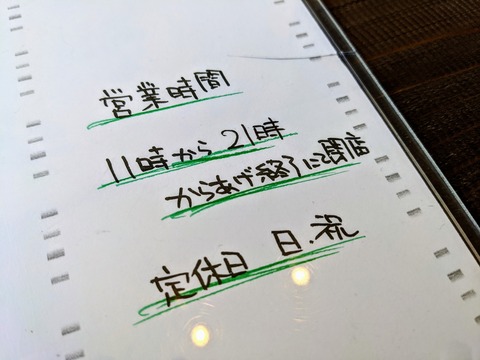 営業時間
11時から21時
からあげ終了にて閉店
定休日 日・祝